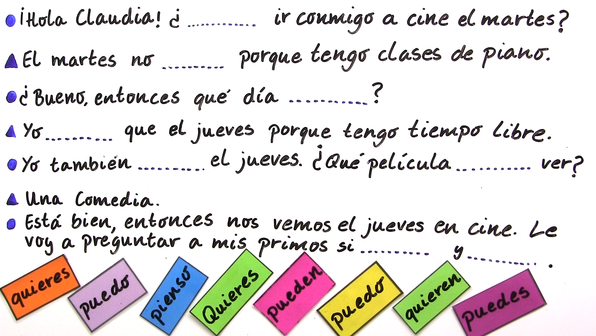 ¡Hola Claudia! ¿ .......... ir conmigo a cine el martes?
El martes no ......... porque tengo clases de piano.
¿Bueno, entonces qué día ...........?
Yo ......... que el jueves porque tengo tiempo libre.
Yo también .......... el jueves. ¿Qué película .......... ver?
Una Comedia.
Está bien, entonces nos vemos el jueves en cine. Le
voy a preguntar a mis primos si .......... y .......... .
quieres puedo pienso Quieres pueden puedo quieren puedes